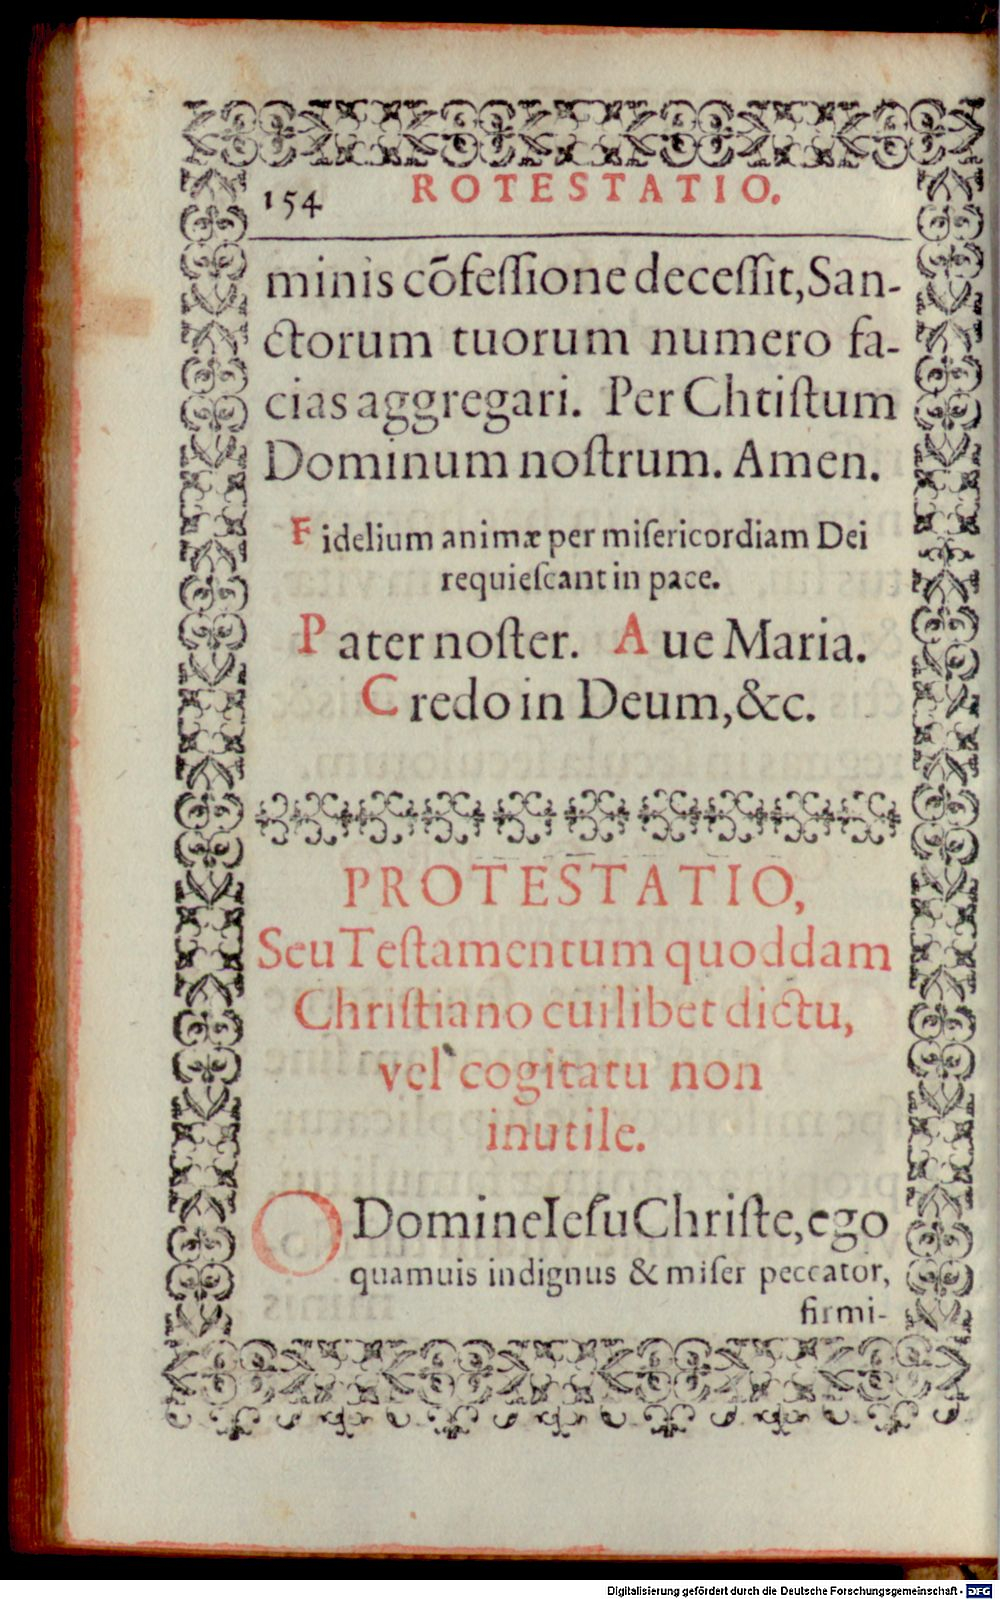 154
ROTESTATIO.
minis cõfeſſione deceſſit, San-
ctorum tuorum numero fa-
cias aggregari. Per Chtiſtum
Dominum noſtrum. Amen.
Fidelium animæ per miſericordiam Dei
requieſcant in pace.
Pater noſter. Aue Maria.
Credo in Deum, &c.
PROTESTATIO,
Seu Teſtamentum quoddam
Chriſtiano cuilibet dictu,
vel cogitatu non
inutile.
O Domine Ieſu Chriſte, ego
quamuis indignus & miſer peccator,
firmi-
Digitalisierung gefördert durch die Deutsche Forschungsgemeinschaft - DFG